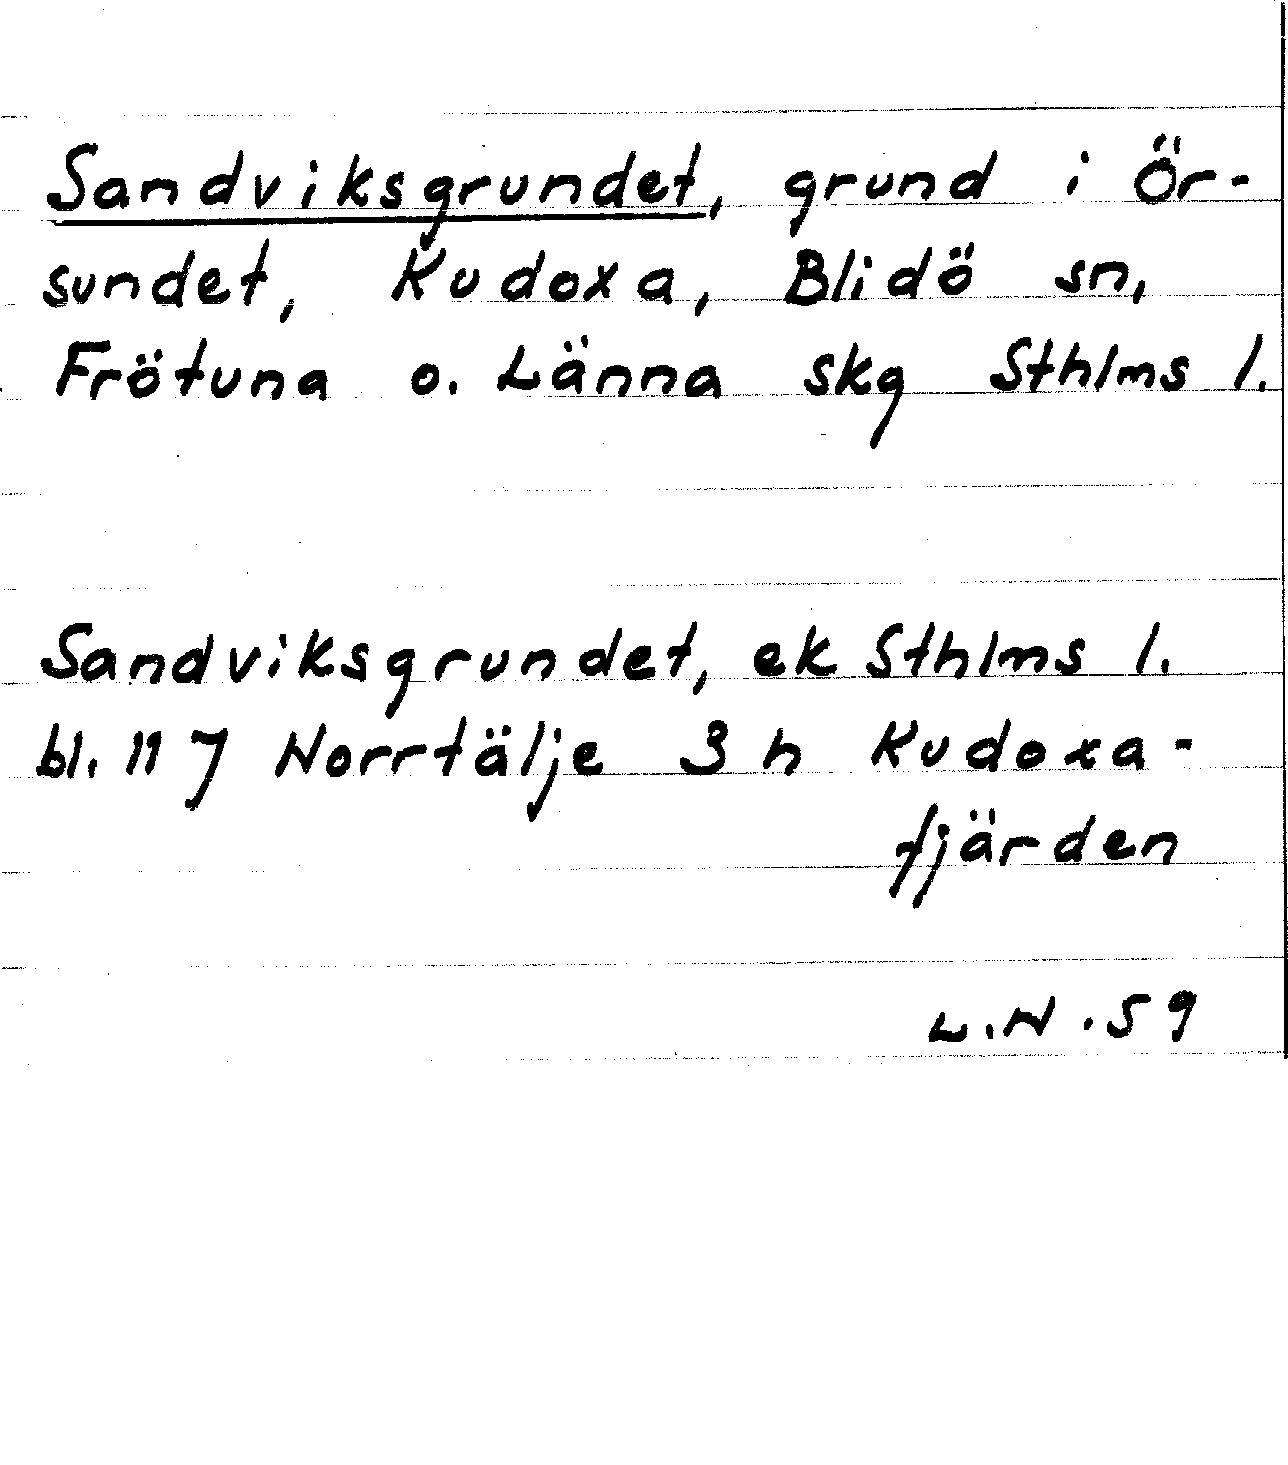 Sandviksgrundet, grund i Ör-
sundet, Kudoxa, Blidö sn,
Frötuna o. Länna skg Sthlms l.
Sandviksgrundet, ek Sthlms l.
bl. 117 Norrtälje 3 h Kudoxa-
fjärden
L.N.59